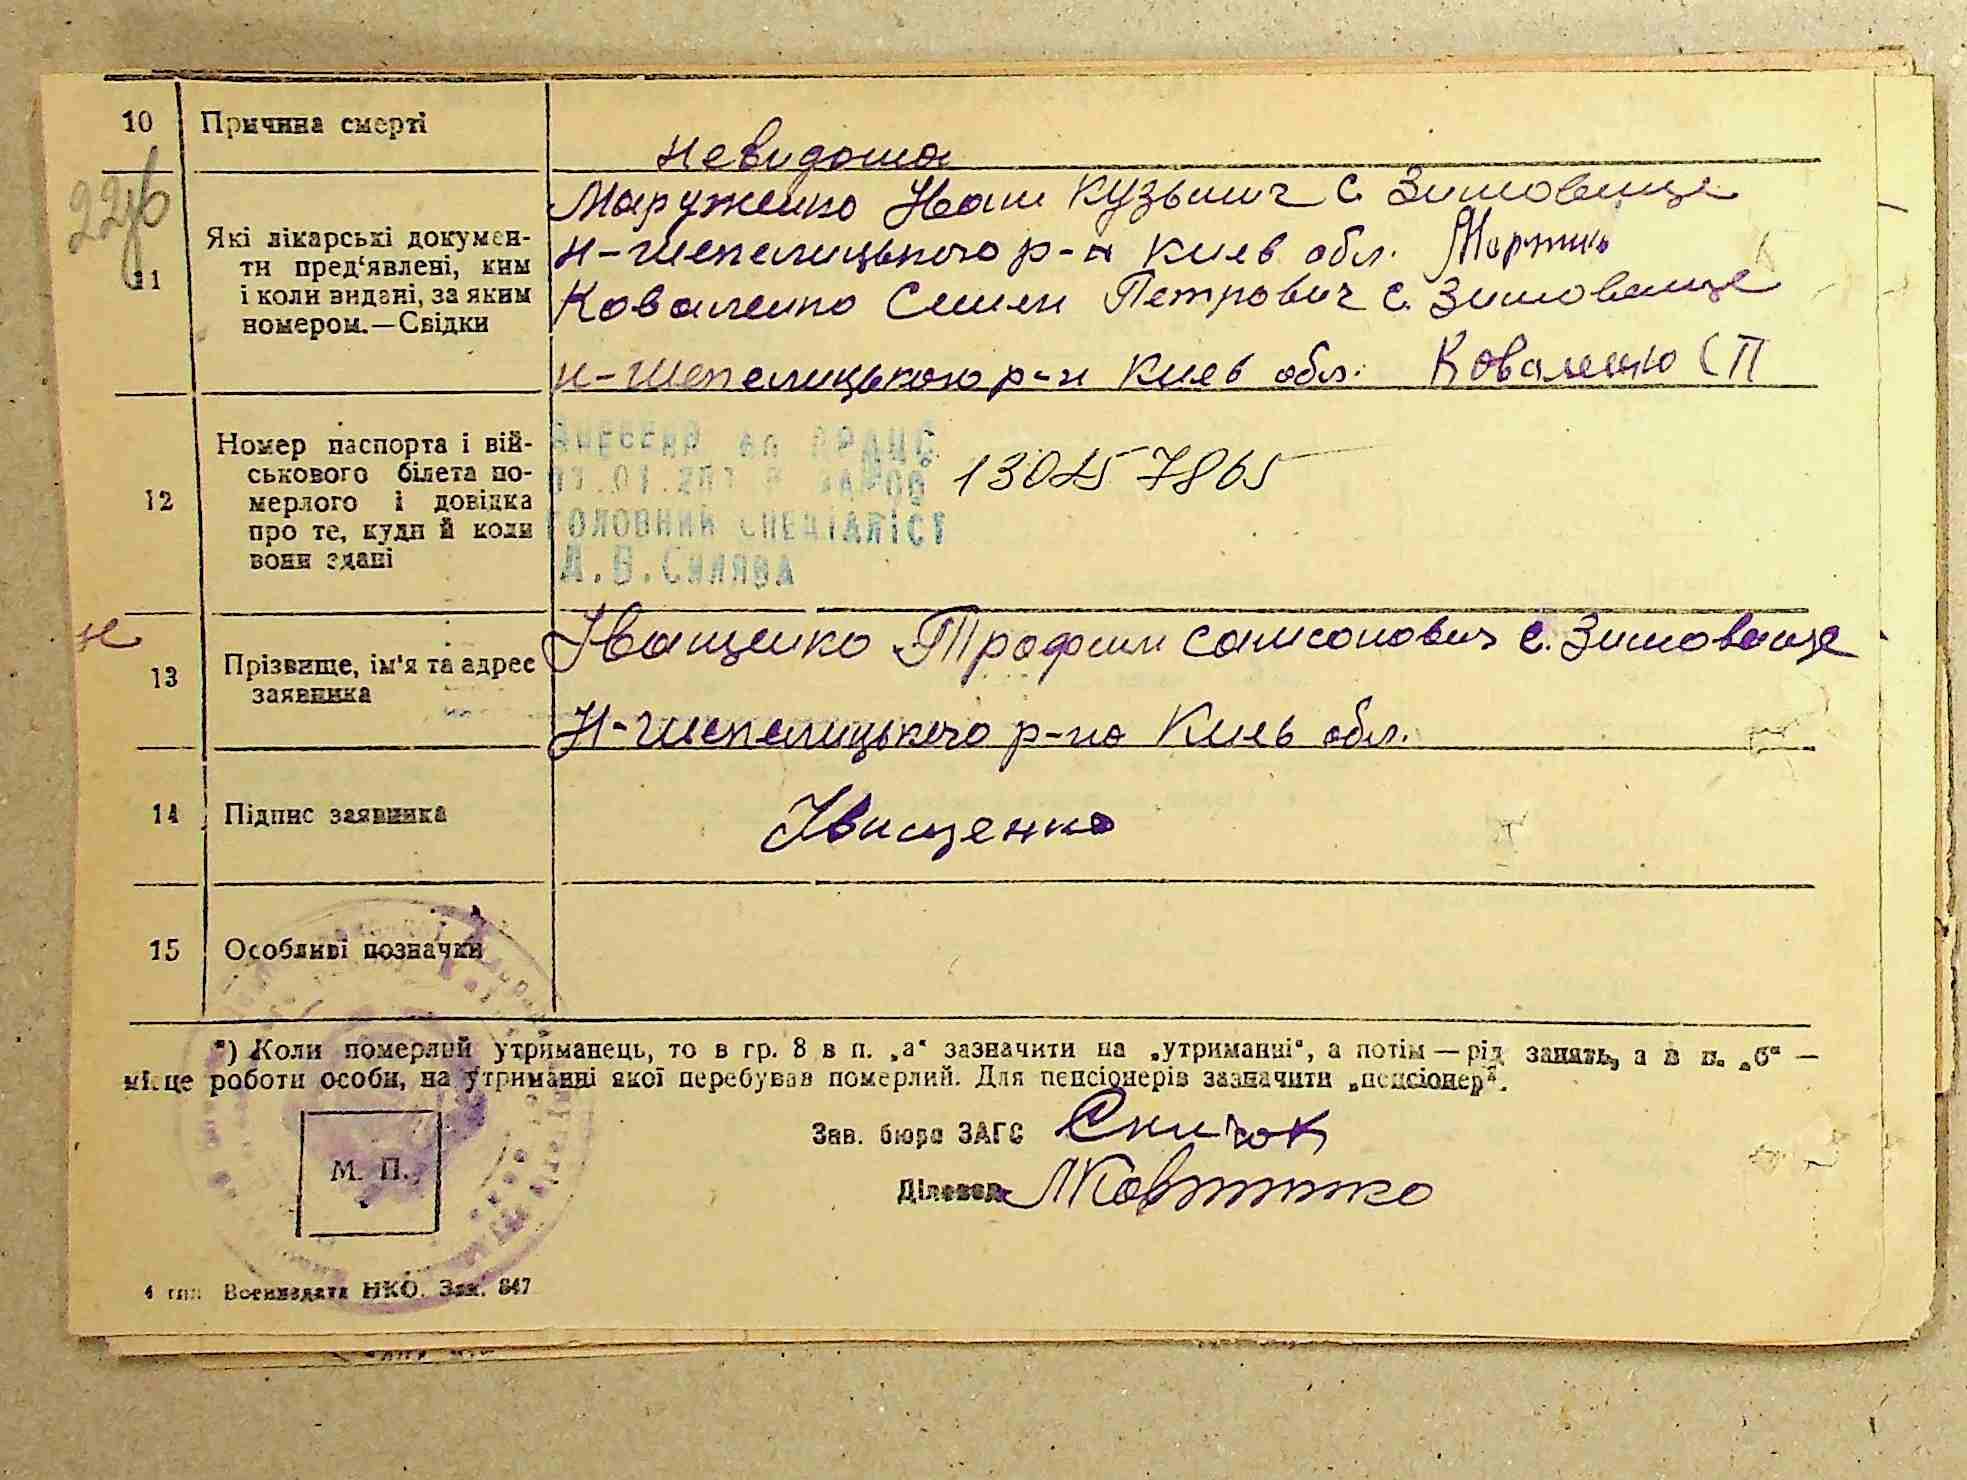 10 Причина смерті невидома
22об
11 Які лікарські докумен-
ти пред'явлені, ким
і коли видані, за яким
номером.—Свідки
Маруженко Иван Кузьмич с. Зимовище
Н-Шепелицького р-н Киев обл.
Коваленко Семен Петрович с. Зимовище
Н-Шепелицького р-н Киев обл. Коваленко С П
12 Номер паспорта і вій-
ськового білета по-
мерлого і довідка
про те, куди й коли
вони здані
ВНЕСЕНО ДО ДРАЦС
13045 7865
ГОЛОВНИЙ СПЕЦІАЛІСТ
н
13 Прізвище, ім'я та адрес
заявника
Іващенко Трофим Самсонович с. Зимовище
Н-Шепелицького р-на Киев обл.
14 Підпис заявника Іващенко
15 Особливі позначки
*) Коли померлий утриманець, то в гр. 8 в п. „а“ зазначити на „утриманні“, а потім — рід занять, а в п. „б“ —
місце роботи особи, на утриманні якої перебував померлий. Для пенсіонерів зазначити „пенсіонер“.
Зав. бюро ЗАГС
М. П.
Діловод
4 тип Воениздата НКО. Зак. 847